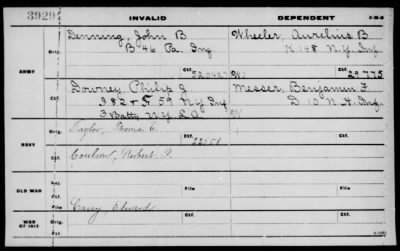 3929
INVALID DEPENDENT
3-M-6
Denning, John B Wheeler, Aurelius B
Orig. B 46 Pa. Inf K 148 N.Y. Inf.
ARMY
Ctf. 520427 Ctf. 29.775
Downey Philip J Messer, Benjamin F
Orig. I & 59 N Y Inf D 10 N.H. Inf.
3 Batty N.Y. L.A.
Taylor, Thomas C.
Orig. Ctf. 22558
NAVY
Coulson, Robert P.
OLD WAR File File
Carey, Edward
WAR OF 1812 Orig. Ctf. Orig. Ctf.